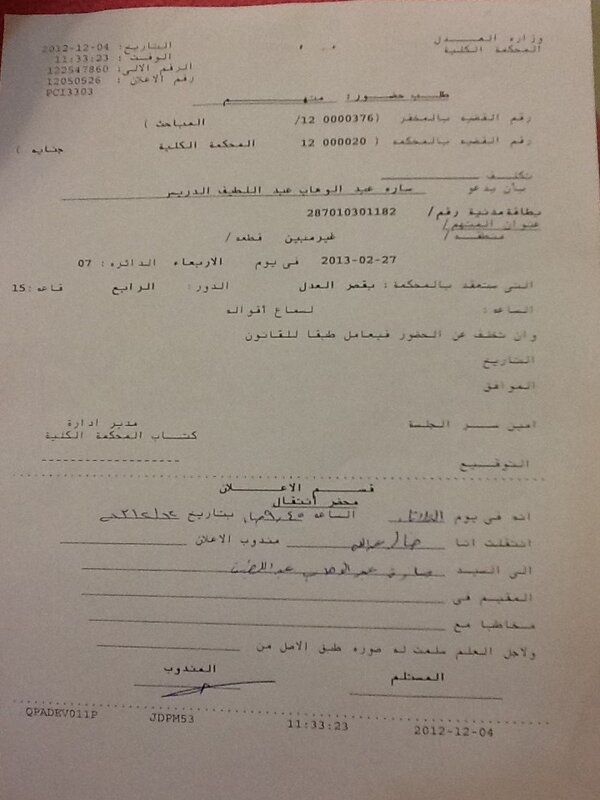 وزارة العـدل
المحكمة الكلية
التاريخ: 2012-12-04
الوقت : 11:33:23
الرقم الالى: 122547860
رقم الاعلان : 12050526
PCI3303
طلب حضور: متهم
رقم القضيه بالمخفر (0000376 12/ المباحث )
رقم القضيه بالمحكمه ( 000020 12 المحكمة الكلية جنايه )
تكلف
بأن يدعو ساره عبد الوهاب عبد اللطيف الدريس
بطاقة مدنية رقم/ 287010301182
عنوان المتهم/
منطقه/ غيرمبين قطعه/
2013-02-27 فى يوم الاربعاء الدائره : 07
التى ستعقد بالمحكمة : بقصر العدل الدور: الرابع قاعه :15
الساعه : لسماع أقواله
وان تخلف عن الحضور فيعامل طبقا للقانون
التاريخ
الموافق
امين سر الجلسة
مدير ادارة
كتاب المحكمة الكلية
التوقيع
قسم الاعلان
محضر انتقال
انه فى يوم الثلاثاء الساعه بتاريخ
انتقلت انا مندوب الاعلان
الى السيد سارة عبد الوهاب عبد اللطيف
المقيم فى
مخاطبا مع
ولاجل العلم سلمت له صوره طبق الاصل من
المستلم
المندوب
QPADEV011P JDPM53 11:33:23 2012-12-04